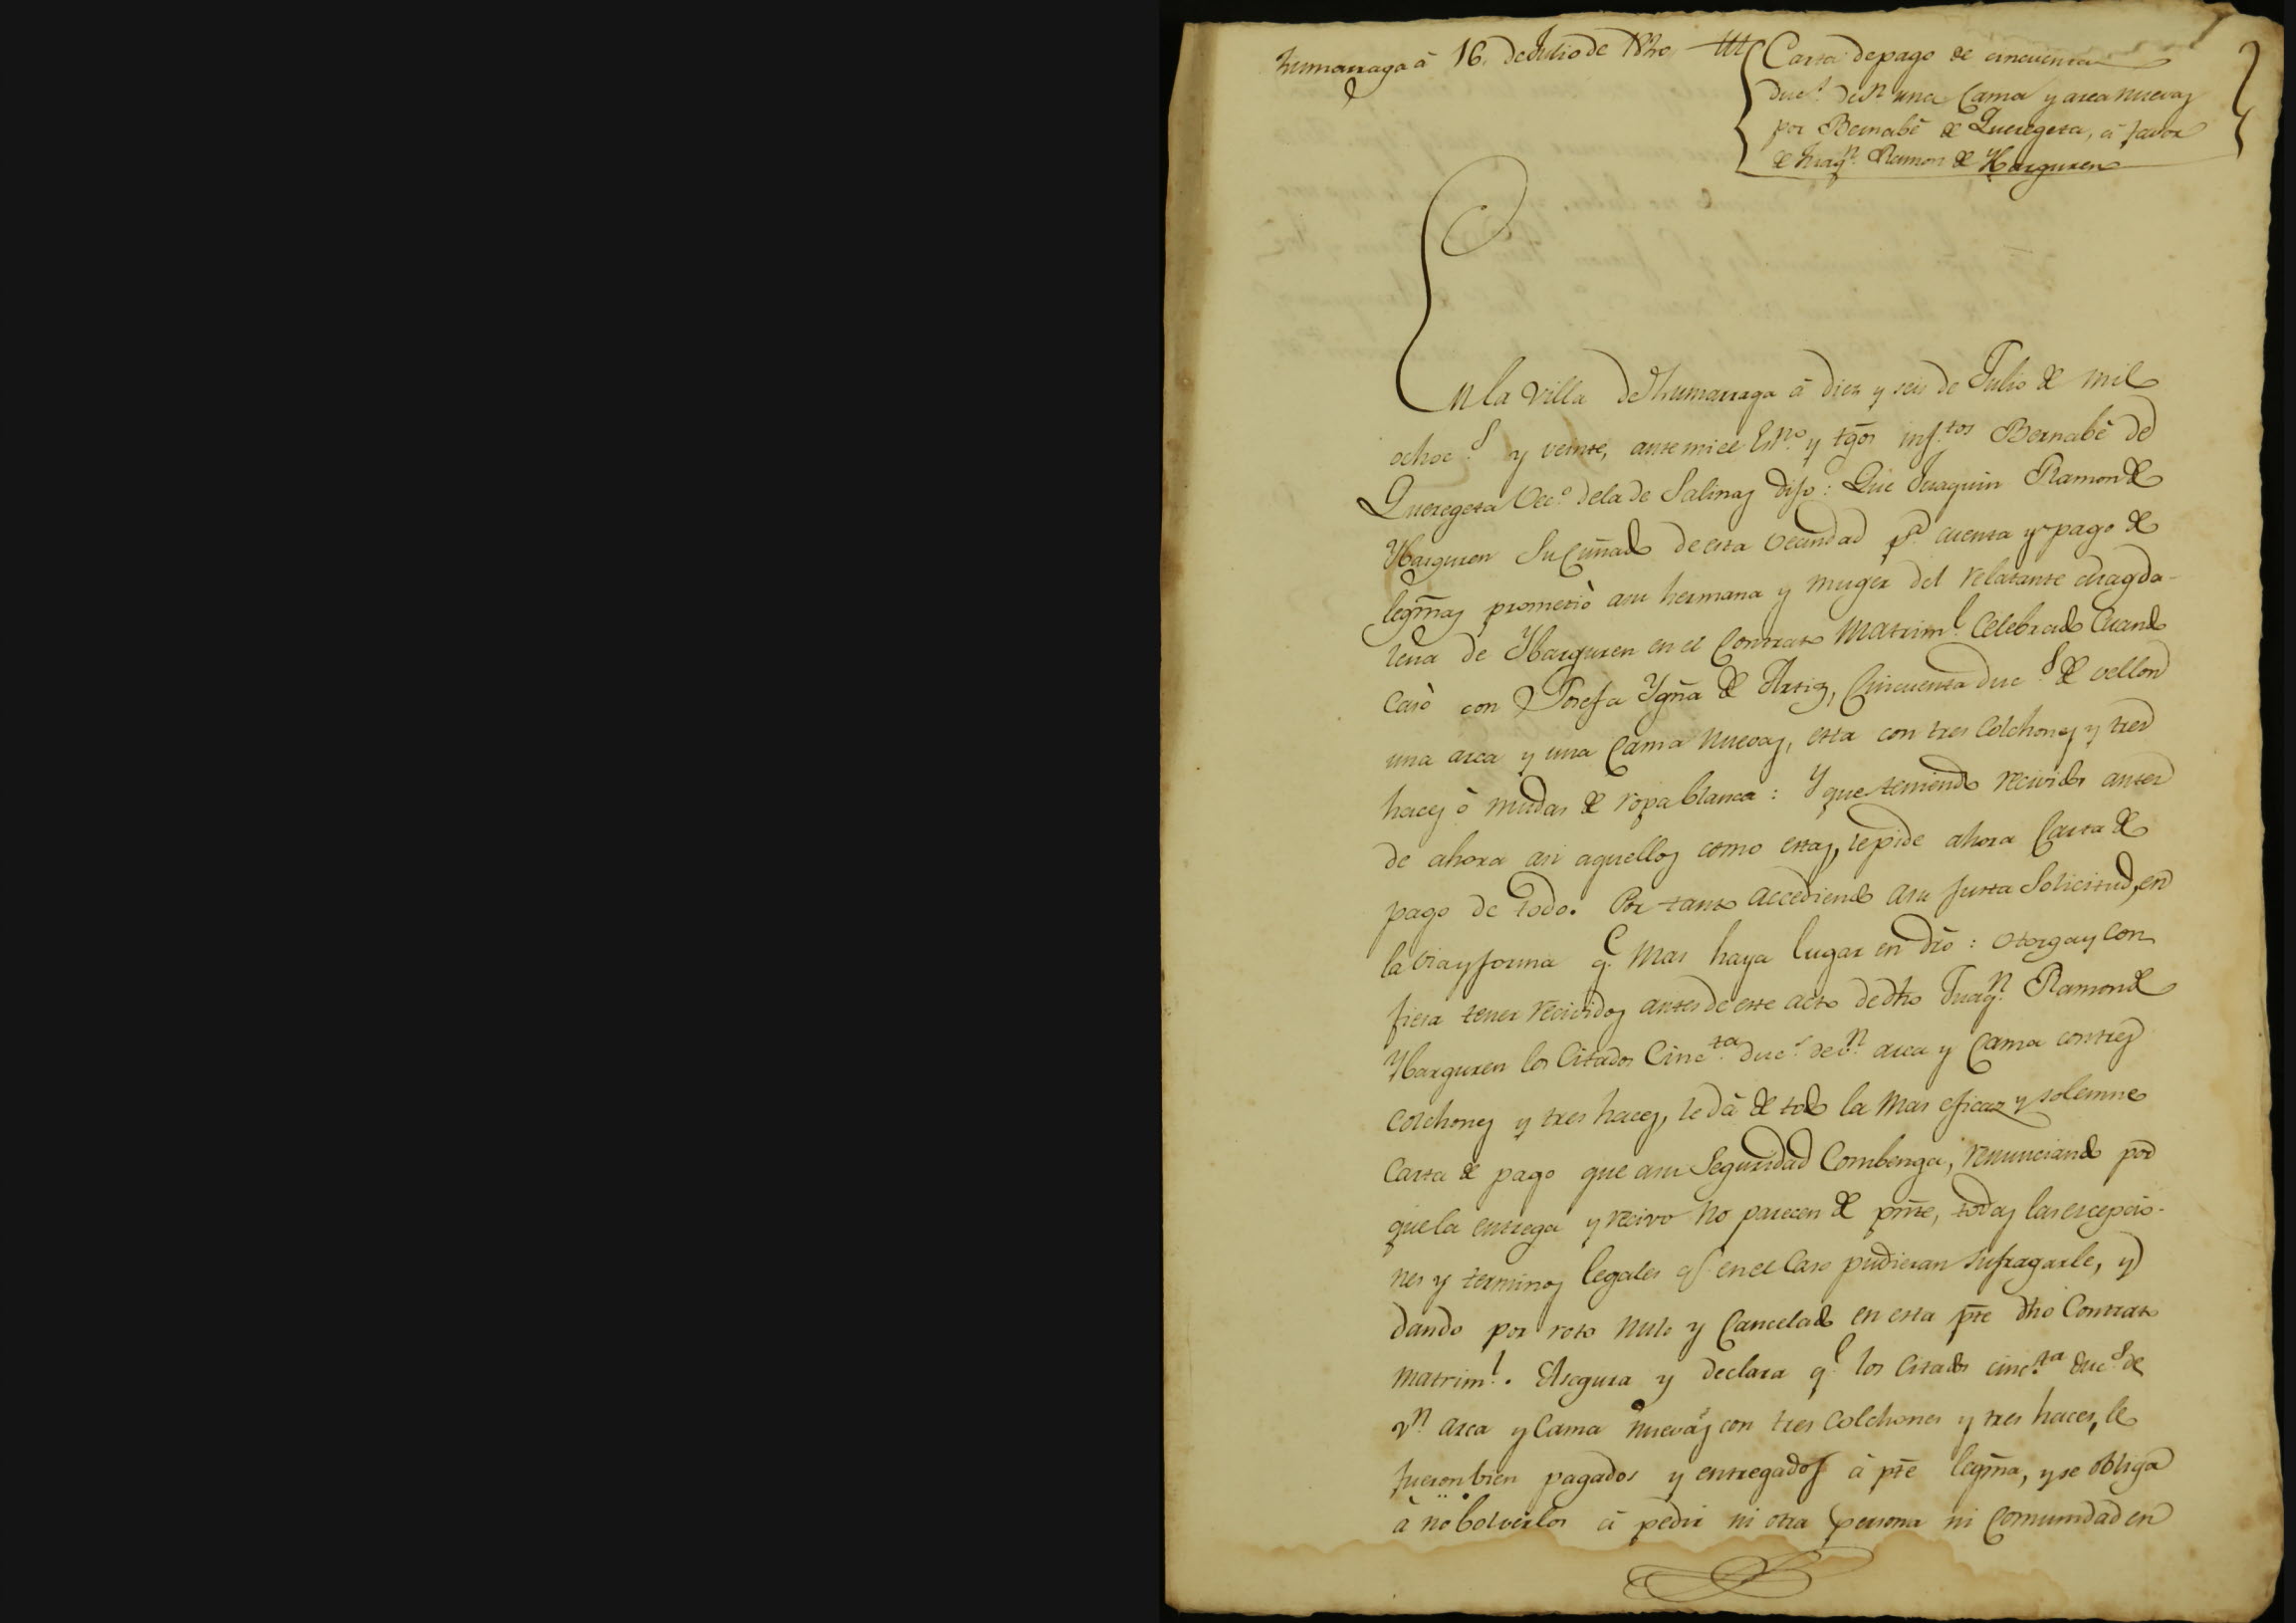 Zumarraga á 16. de Julio de 1820
Carta de pago de cincuenta
duc.s de v.n una Cama y arca nuevas
por Bernabé de Queregeta, á favor
de Juaq.n Ramon de Ybarguren
En la Villa de Zumarraga á diez y seis de Julio de mil
ochoc.s y veinte, ante mi el Es.no y tgos inf.tos Bernabé de
Queregeta Vec.o de la de Salinas dijo: Que Juaquin Ramon de
Ybarguren Su Cuñado de esta vecindad p.a cuenta y pago de
legmas prometió a su hermana y muger del relatante Magda-
lena de Ybarguren en el Contrato Matrim.l Celebrado Cuando
Casó con Josefa Ygña de Artiz, Cincuenta duc.s de vellon
una arca y una Cama nuevas, esta con tres Colchones y tres
haces ó mudas de ropa blanca: Y que teniendo recividos antes
de ahora asi aquellos como estas, le pide ahora Carta de
pago de todo. Por tanto accediendo a su justa Solicitud, en
la via y forma q.e mas haya lugar en dro: otorga y con
fiesa tener recividos antes de este acto de dho Juaq.n Ramon de
Ybarguren los Citados Cinc.ta duc.s de v.n arca y Cama con tres
Colchones y tres haces, le dá de todo la mas eficaz y solemne
Carta de pago que a su Seguridad Combenga, renunciando por
que la entrega y recivo no parecen de pnte, todas las escepcio-
nes y terminos legales q.e en el Caso pudieran sufragarle, y
dando por roto nulo y Cancelado en esta pte dho Contrato
matrim.l. Asegura y declara q.e los Citados cinc.ta duc.s de
v.n arca y Cama nuevas con tres Colchones y tres haces, le
fueron bien pagados y entregados á pte legma, y se obliga
á no bolverlos á pedir ni otra persona ni Comunidad en